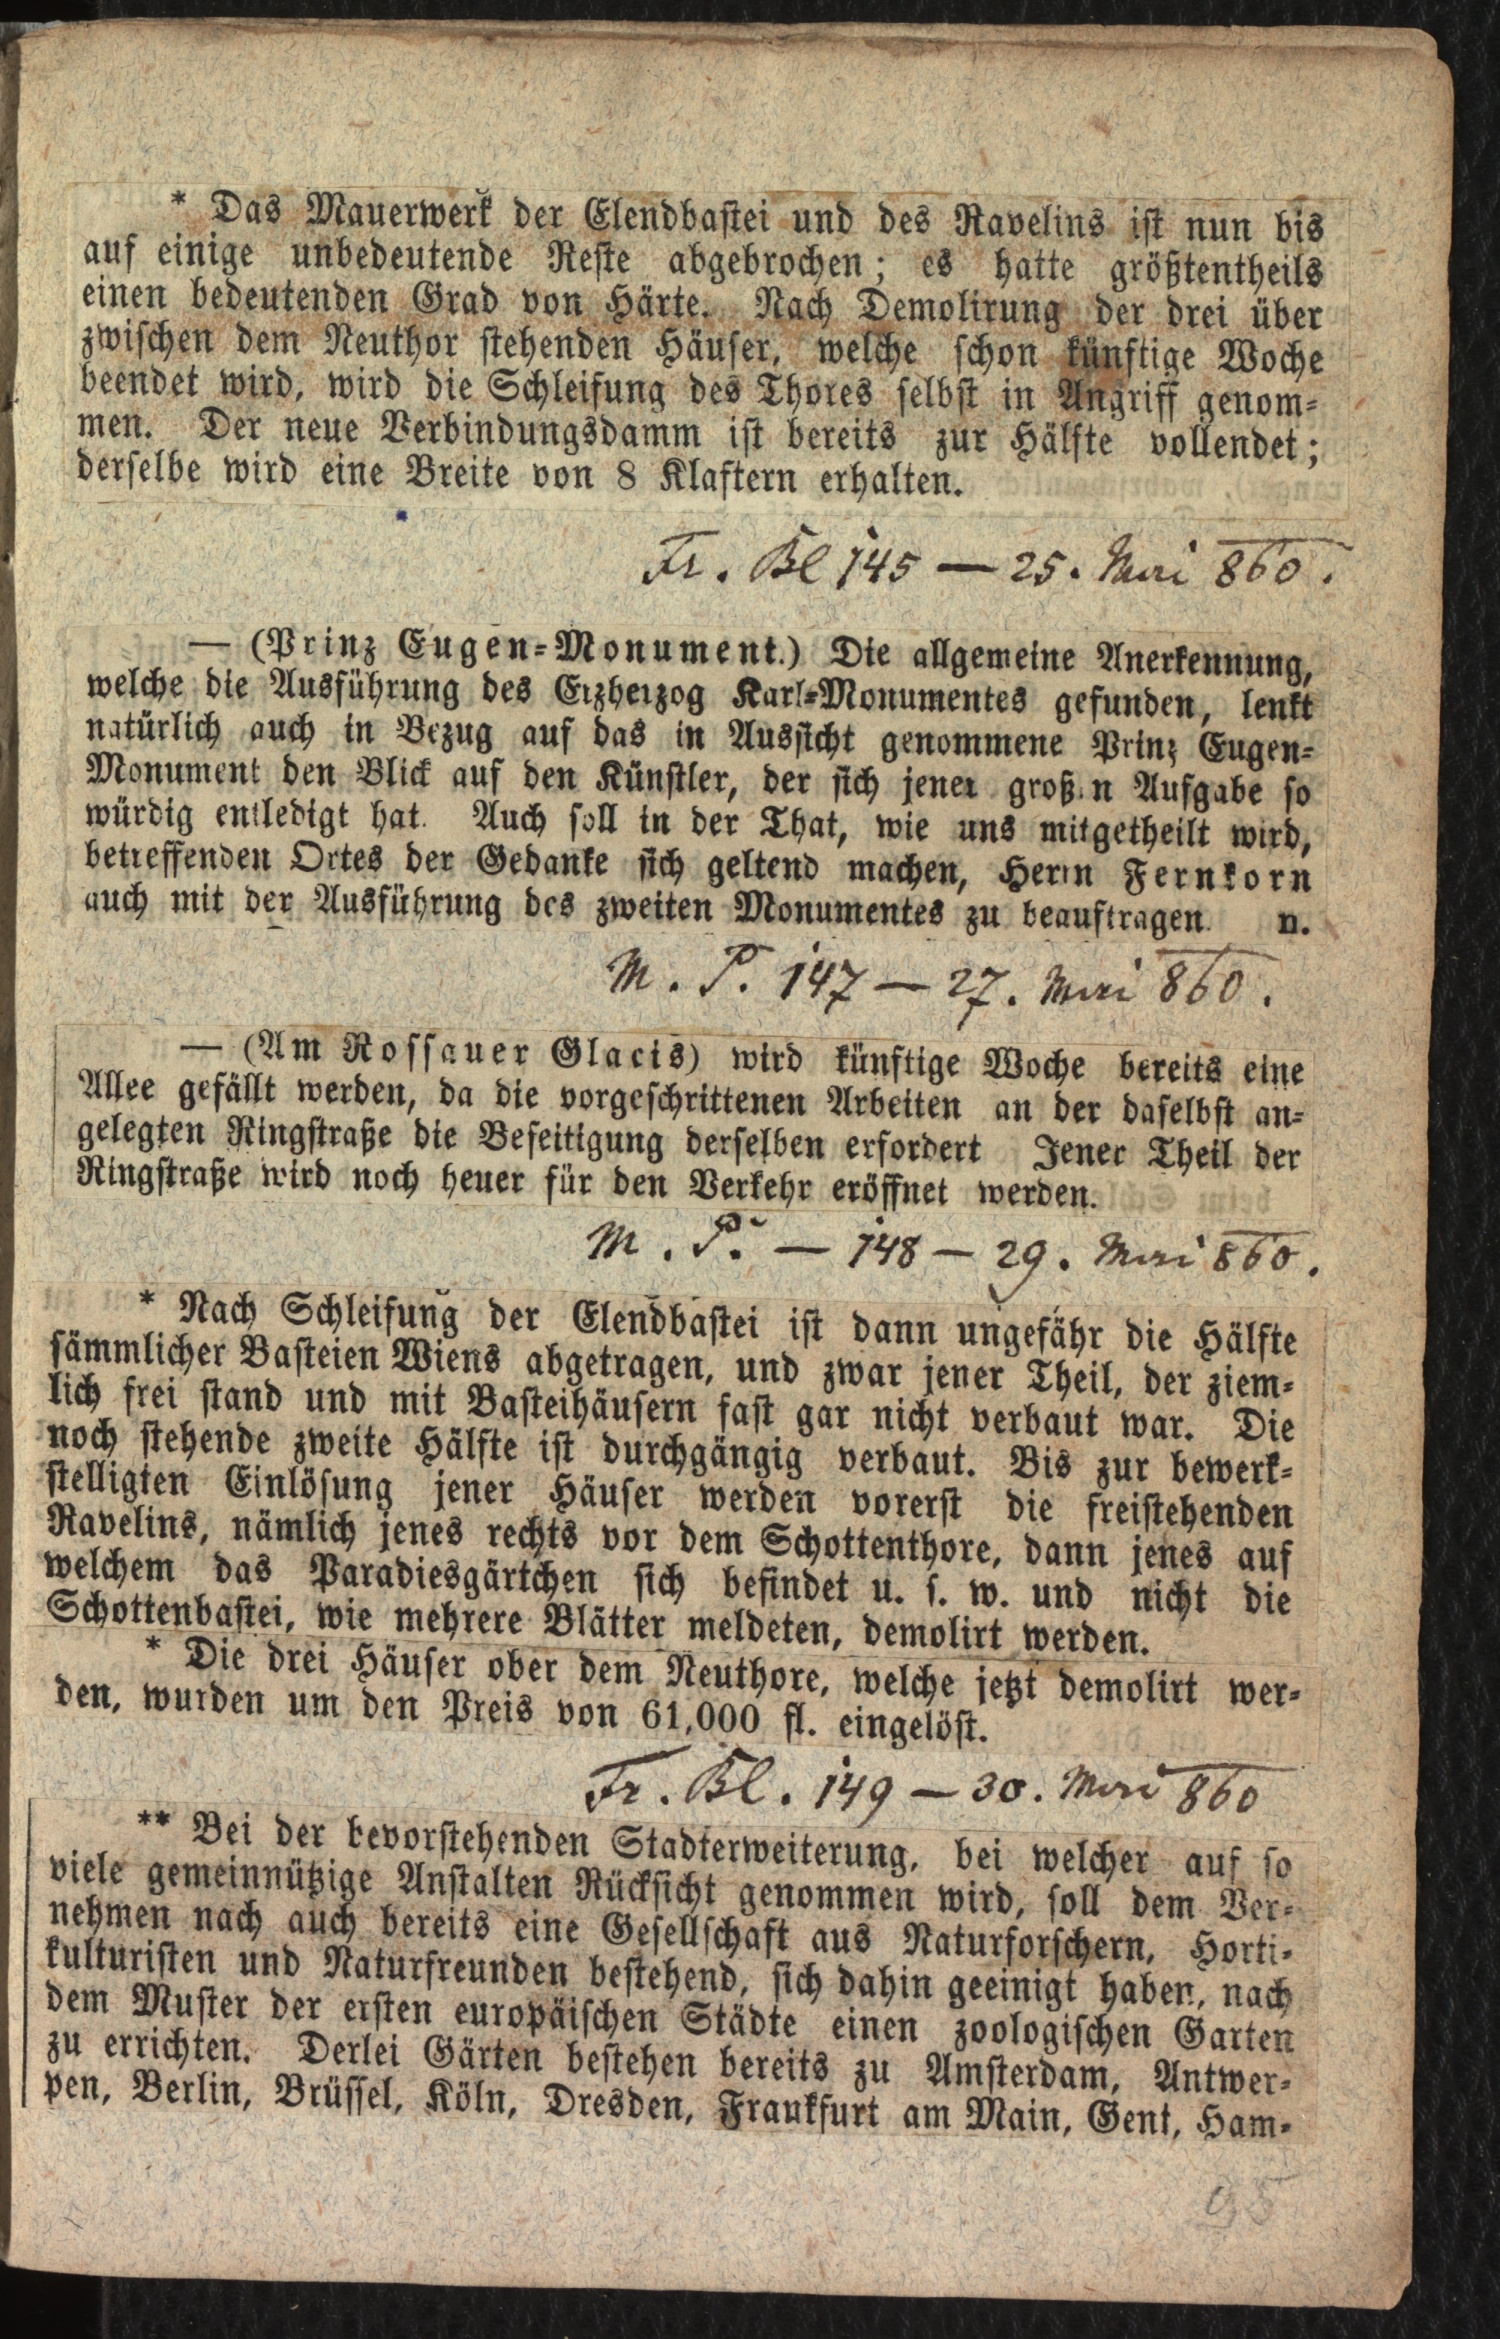 * Das Mauerwerk der Elendbastei und des Ravelins ist nun bis
auf einige unbedeutende Reste abgebrochen; es hatte größtentheils
einen bedeutenden Grad von Härte. Nach Demolirung der drei über
zwischen dem Neuthor stehenden Häuser, welche schon künftige Woche
beendet wird, wird die Schleifung des Thores selbst in Angriff genom-
men. Der neue Verbindungsdamm ist bereits zur Hälfte vollendet;
derselbe wird eine Breite von 8 Klaftern erhalten.
Fr. Bl 145 — 25. Mai 860.
— (Prinz Eugen-Monument.) Die allgemeine Anerkennung,
welche die Ausführung des Erzherzog Karl-Monumentes gefunden, lenkt
natürlich auch in Bezug auf das in Aussicht genommene Prinz Eugen-
Monument den Blick auf den Künstler, der sich jener großen Aufgabe so
würdig entledigt hat. Auch soll in der That, wie uns mitgetheilt wird,
betreffenden Ortes der Gedanke sich geltend machen, Herrn Fernkorn
auch mit der Ausführung des zweiten Monumentes zu beauftragen. n.
M. P. 147 — 27. Mai 860.
— (Am Rossauer Glacis) wird künftige Woche bereits eine
Allee gefällt werden, da die vorgeschrittenen Arbeiten an der daselbst an-
gelegten Ringstraße die Beseitigung derselben erfordert Jener Theil der
Ringstraße wird noch heuer für den Verkehr eröffnet werden.
M. P. — 148 — 29. Mai 860.
* Nach Schleifung der Elendbastei ist dann ungefähr die Hälfte
sämmlicher Basteien Wiens abgetragen, und zwar jener Theil, der ziem-
lich frei stand und mit Basteihäusern fast gar nicht verbaut war. Die
noch stehende zweite Hälfte ist durchgängig verbaut. Bis zur bewerk-
stelligten Einlösung jener Häuser werden vorerst die freistehenden
Ravelins, nämlich jenes rechts vor dem Schottenthore, dann jenes auf
welchem das Paradiesgärtchen sich befindet u. s. w. und nicht die
Schottenbastei, wie mehrere Blätter meldeten, demolirt werden.
* Die drei Häuser ober dem Neuthore, welche jetzt demolirt wer-
den, wurden um den Preis von 61,000 fl. eingelöst.
Fr. Bl. 149 — 30. Mai 860
** Bei der bevorstehenden Stadterweiterung, bei welcher auf so
viele gemeinnützige Anstalten Rücksicht genommen wird, soll dem Ver-
nehmen nach auch bereits eine Gesellschaft aus Naturforschern, Horti-
kulturisten und Naturfreunden bestehend, sich dahin geeinigt haben, nach
dem Muster der ersten europäischen Städte einen zoologischen Garten
zu errichten. Derlei Gärten bestehen bereits zu Amsterdam, Antwer-
pen, Berlin, Brüssel, Köln, Dresden, Frankfurt am Main, Gent, Ham-
95